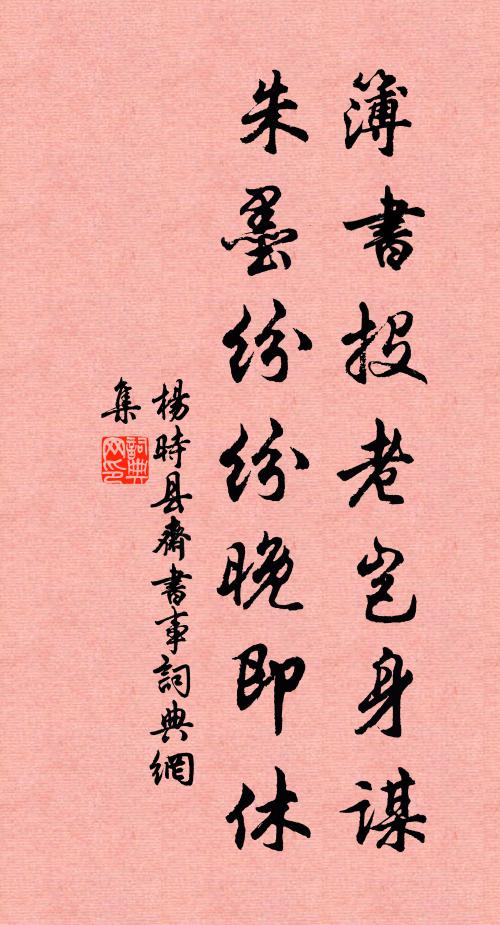 簿書投老岂身謀
朱墨纷纷晚即休
楊時县齋書事詞典網
集
詞典
网印